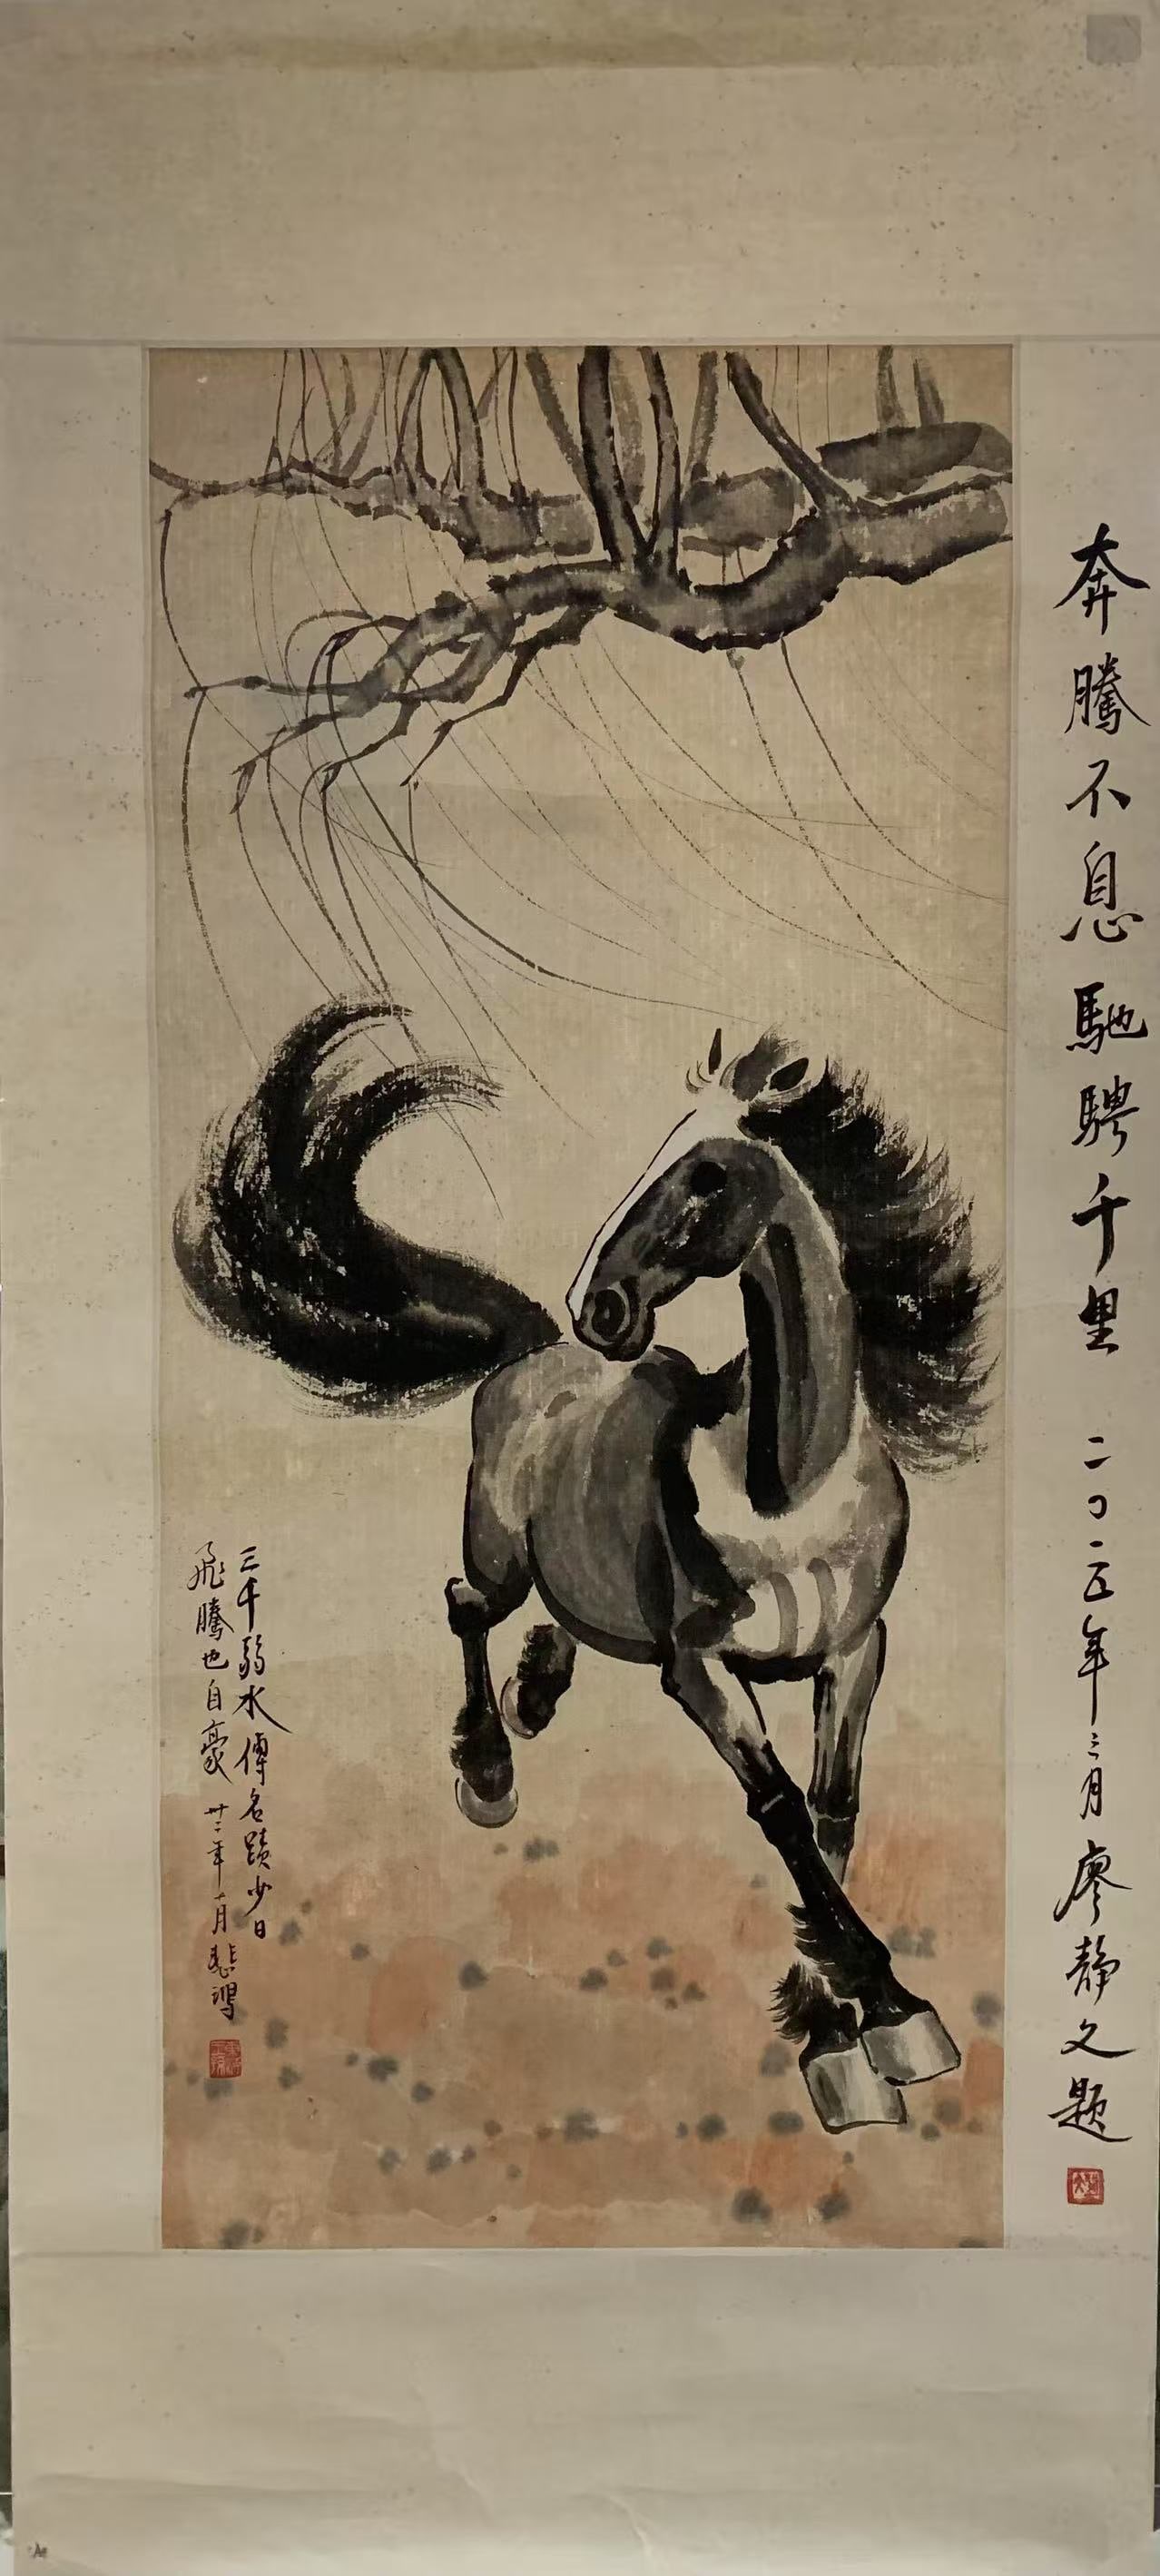 奔騰不息馳騁千里 二〇一五年三月廖靜文題
三千弱水傳名蹟少日
飛騰也自豪 卅二年十月悲鴻